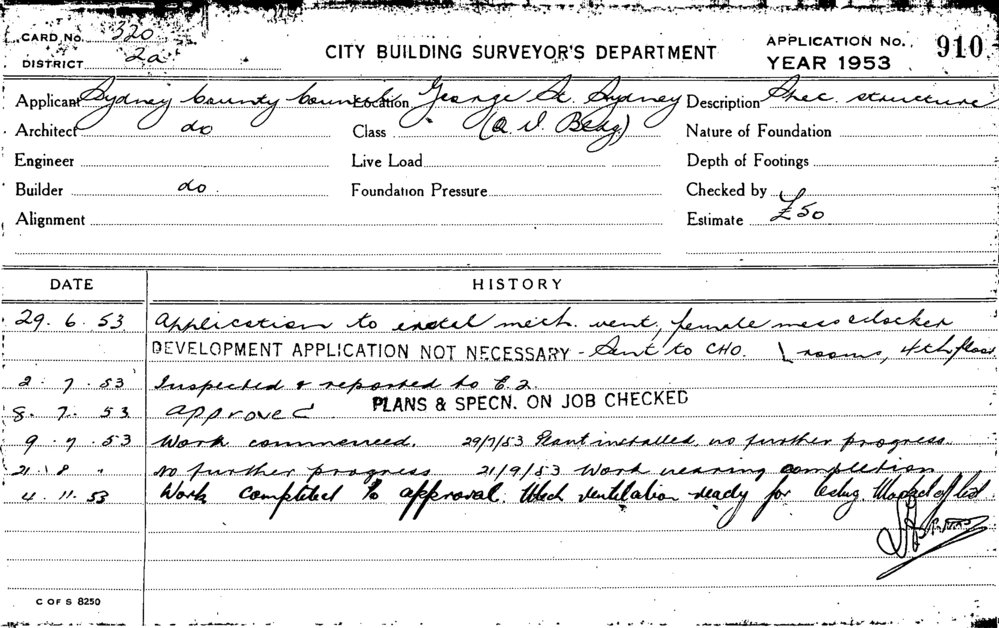 CARD No. 320
DISTRICT 2a
CITY BUILDING SURVEYOR'S DEPARTMENT
APPLICATION No. 910
YEAR 1953
Applicant Sydney County Council Location George St. Sydney Description Spec. structure
Architect do Class (Q. V. Bldg.) Nature of Foundation
Engineer Live Load Depth of Footings
Builder do. Foundation Pressure Checked by
Alignment Estimate £50
DATE HISTORY
29. 6. 53 Application to instal mech. vent, female mess & locker
DEVELOPMENT APPLICATION NOT NECESSARY - Sent to CHO. rooms, 4th floor.
2. 7. 53 Inspected & reported to
PLANS & SPECN. ON JOB CHECKED
8. 7. 53 Approved
9. 7. 53 Work commenced. 29/7/53 Plant installed, no further progress.
21. 8 " No further progress 21/9/53 Work nearing completion
4. 11. 53 Work completed to approval. Mech ventilation ready for being marked off list
C OF S 8250